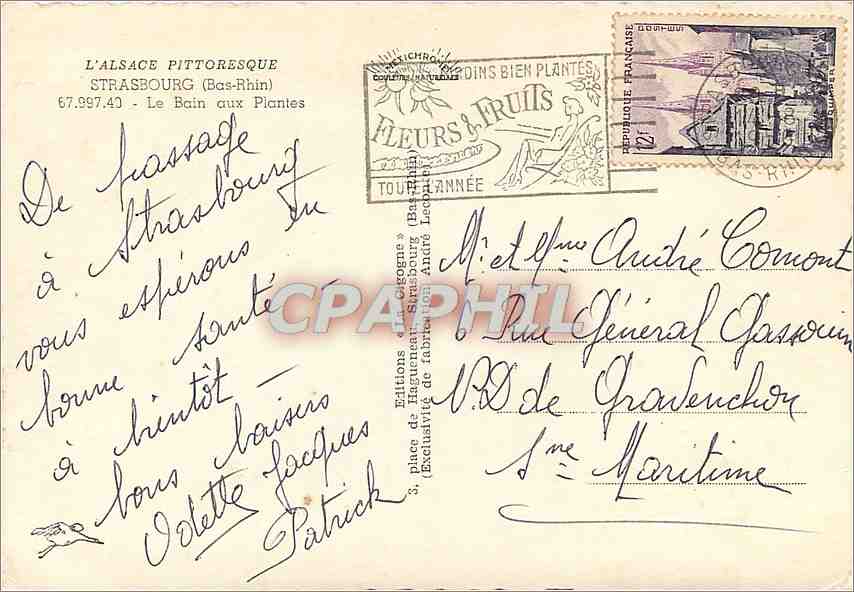 L'ALSACE PITTORESQUE
STRASBOURG (Bas-Rhin)
67.997.40 - Le Bain aux Plantes
De passage
à Strasbourg
vous espérons en
bonne santé -
à bientôt -
bons baisers
Odette Jacques
Patrick
MEXICHROME
COULEURS NATURELLES
BIEN PLANTÉS
FLEURS & FRUITS
TOUTE L'ANNÉE
REPUBLIQUE FRANÇAISE
POSTES
QUIMPER
12F
BAS-RHIN
Editions « La Cigogne »
3, place de Haguenau, Strasbourg (Bas-Rhin)
(Exclusivité de fabrication André Leconte)
CPAPHIL
Mr et Mme André Comont
6 Rue Général Gassouin
N.D de Gravenchon
Sne Maritime